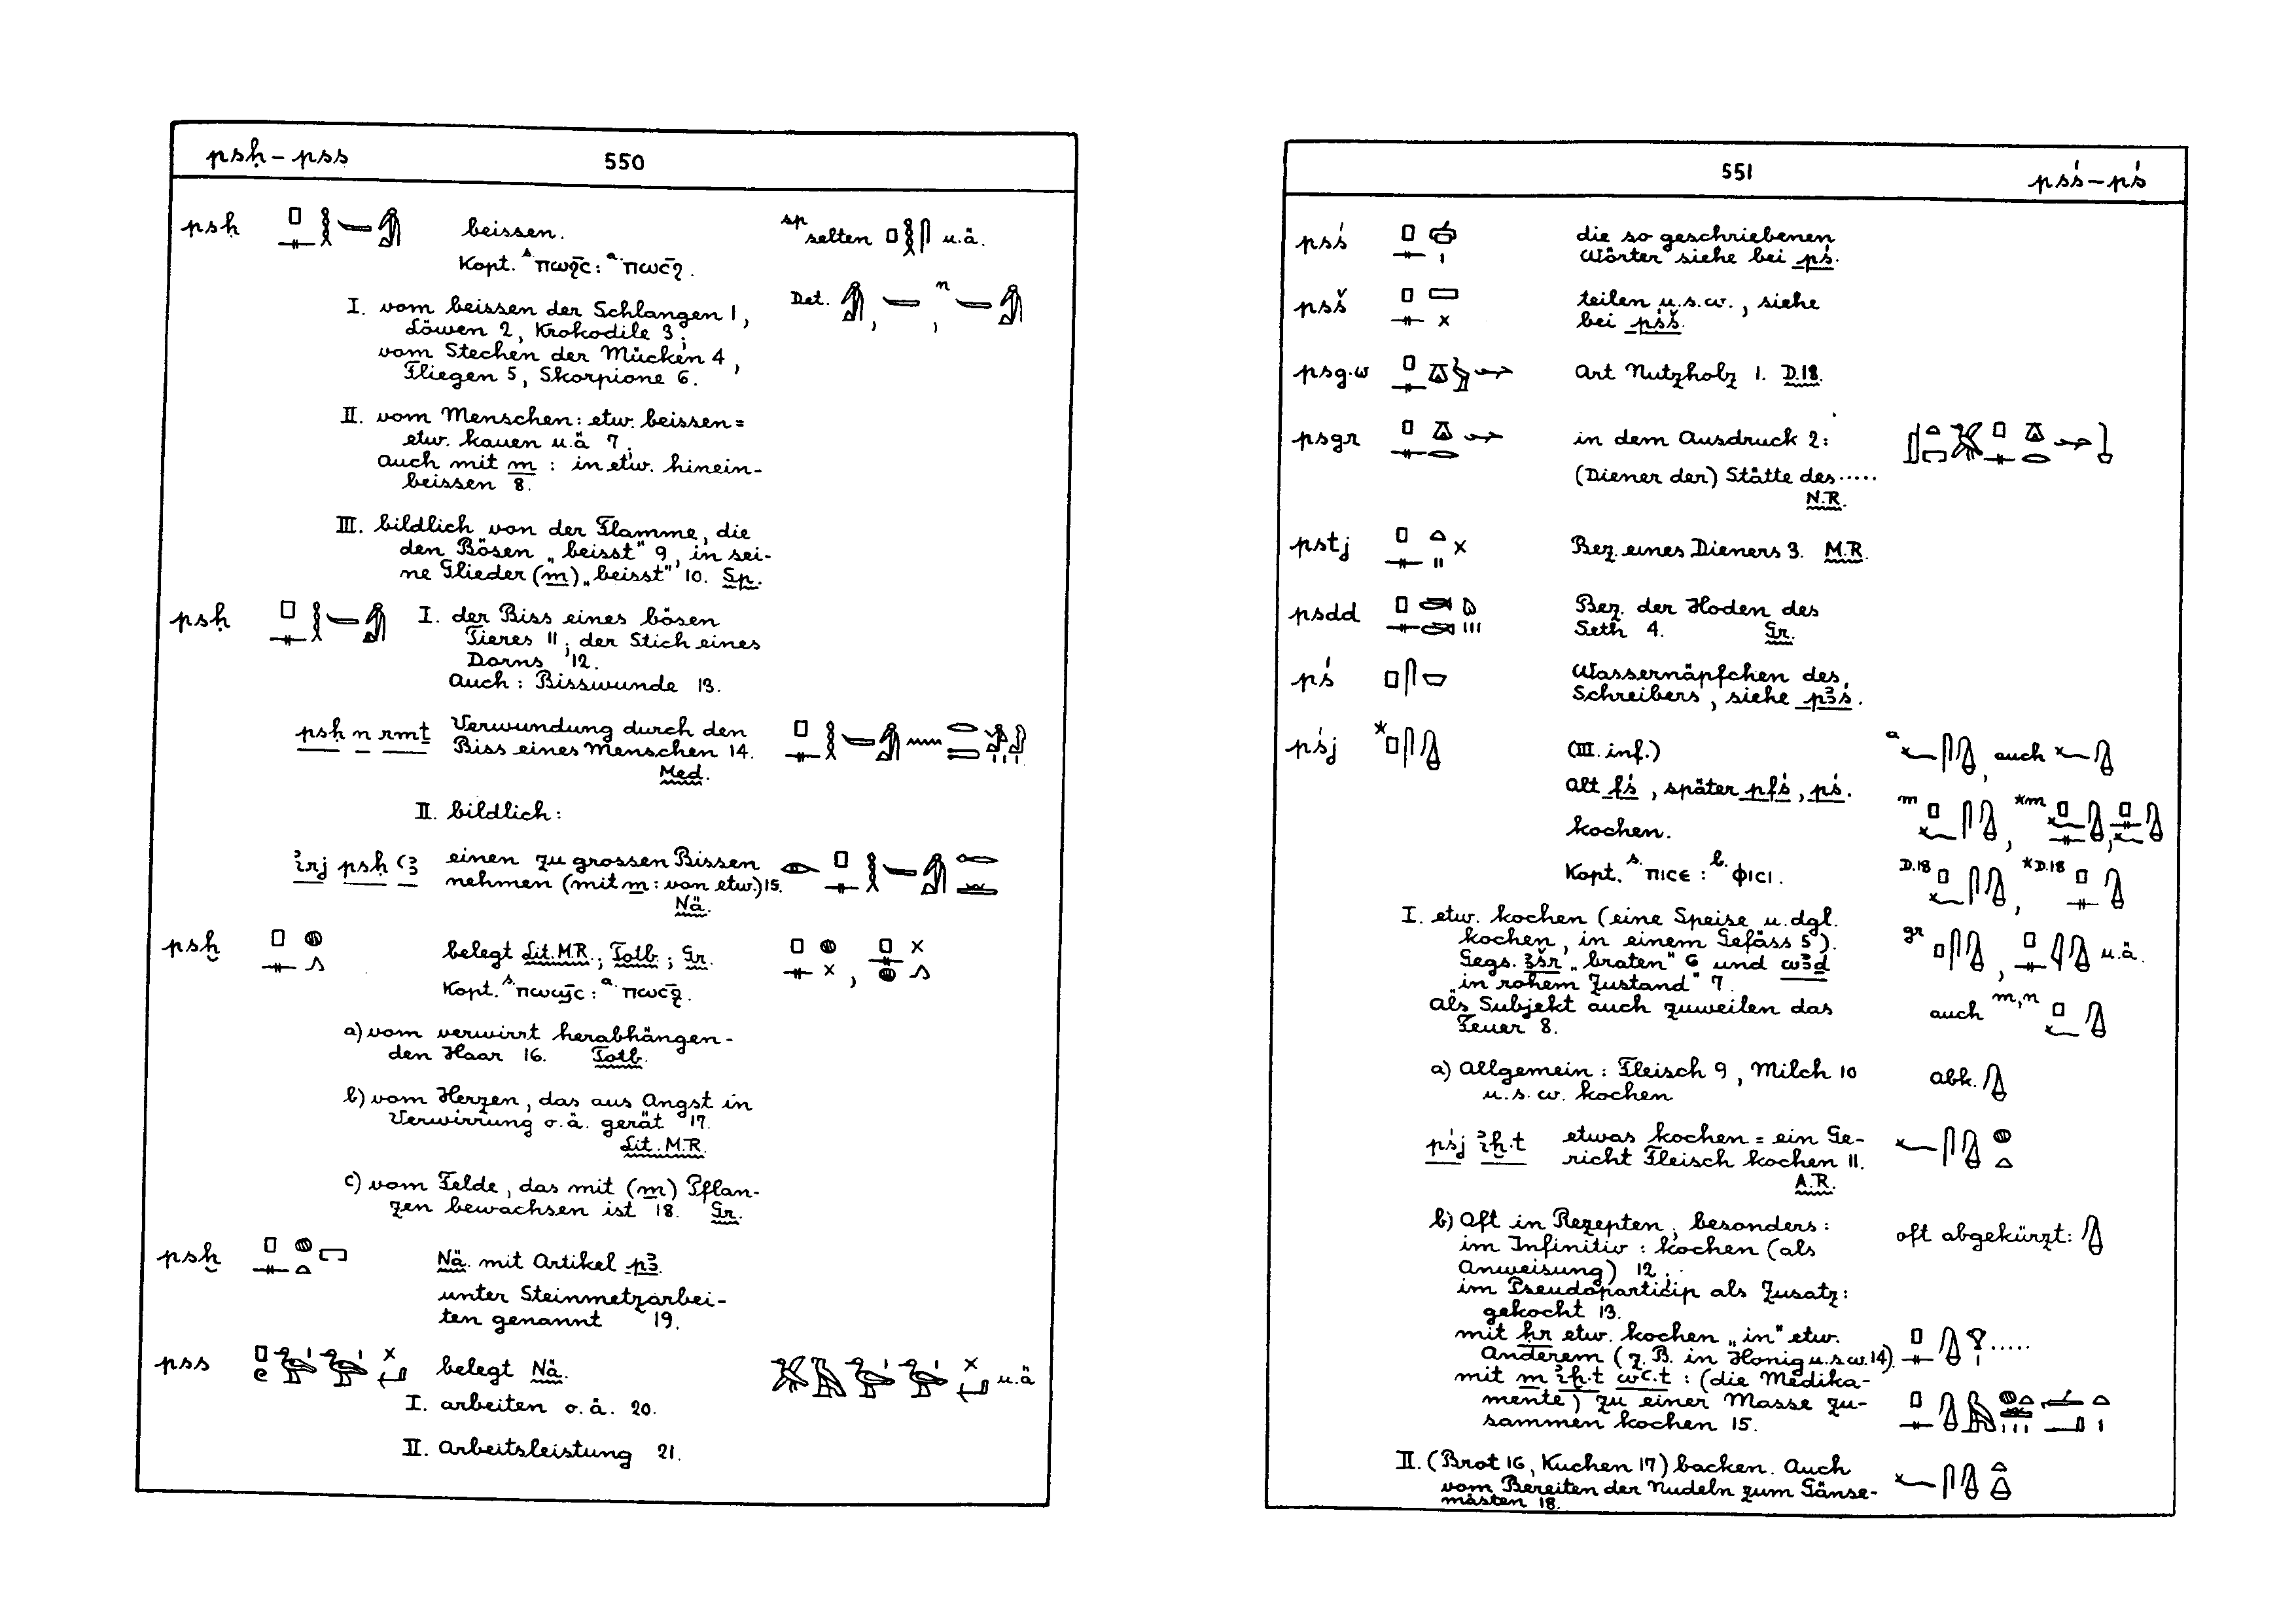 psḥ – pss
550
psḥ beissen. sp selten u.ä.
Kopt. s. ⲡⲱϩ̄ⲥ : a. ⲡⲱⲥ̄ϩ.
I. vom beissen der Schlangen 1, Det. , n ,
Löwen 2, Krokodile 3;
vom Stechen der Mücken 4,
Fliegen 5, Skorpione 6.
II. vom Menschen: etw. beissen =
etw. kauen u.ä 7;
Auch mit m : in etw. hinein-
beissen 8.
III. bildlich von der Flamme, die
den Bösen „beisst" 9, in sei-
ne Glieder (m) „beisst" 10. Sp.
psḥ I. der Biss eines bösen
Tieres 11; der Stich eines
Dorns 12.
Auch : Bisswunde 13.
psḥ n rmṯ Verwundung durch den
Biss eines Menschen 14.
Med.
II. bildlich:
ꞽrj psḥ ꜥꜣ einen zu grossen Bissen
nehmen (mit m: von etw.) 15.
Nä.
psḫ belegt Lit. M.R.; Totb.; Gr. ,
Kopt. s. ⲡⲱϣ̄ⲥ : a. ⲡⲱⲥ̄ϩ.
a) vom verwirrt herabhängen-
den Haar 16. Totb.
b) vom Herzen, das aus Angst in
Verwirrung o.ä. gerät 17.
Lit. M.R.
c) vom Felde, das mit (m) Pflan-
zen bewachsen ist 18. Gr.
psḫ Nä. mit Artikel pꜣ.
unter Steinmetzarbei-
ten genannt 19.
pss belegt Nä. u.ä
I. arbeiten o.ä. 20.
II. Arbeitsleistung 21.
551
psś – pś
psś die so geschriebenen
Wörter siehe bei pś.
psš teilen u.s.w., siehe
bei pśš.
psg·w Art Nutzholz 1. D.18.
psgr in dem Ausdruck 2:
(Diener der) Stätte des .....
N.R.
pstj Bez. eines Dieners 3. M.R.
psdd Bez. der Hoden des
Seth 4. Gr.
pś Wassernäpfchen des
Schreibers, siehe pꜣś.
pśj * (III. inf.) a , auch
Alt fś, später pfś, pś.
m , *m ,
kochen.
Kopt. s. ⲡⲓⲥⲉ : b. ⲫⲓⲥⲓ. D.18 , *D.18
I. etw. kochen (eine Speise u. dgl.
kochen, in einem Gefäss 5). gr , u.ä.
Gegs. ꜣšr „braten" 6 und wꜣḏ
„in rohem Zustand" 7.
Als Subjekt auch zuweilen das auch m,n
Feuer 8.
a) Allgemein : Fleisch 9, Milch 10 Abk.
u.s.w. kochen
pśj ꞽḫ·t etwas kochen = ein Ge-
richt Fleisch kochen 11.
A.R.
b) Oft in Rezepten; besonders: oft abgekürzt:
im Infinitiv : kochen (als
Anweisung) 12;
im Pseudoparticip als Zusatz:
gekocht 13.
mit ḥr etw. kochen „in" etw. .....
Anderem (z.B. in Honig u.s.w. 14).
mit m ꞽḫ·t wꜥ·t : (die Medika-
mente) zu einer Masse zu-
sammen kochen 15.
II. (Brot 16, Kuchen 17) backen. Auch
vom Bereiten der Nudeln zum Gänse-
mästen 18.